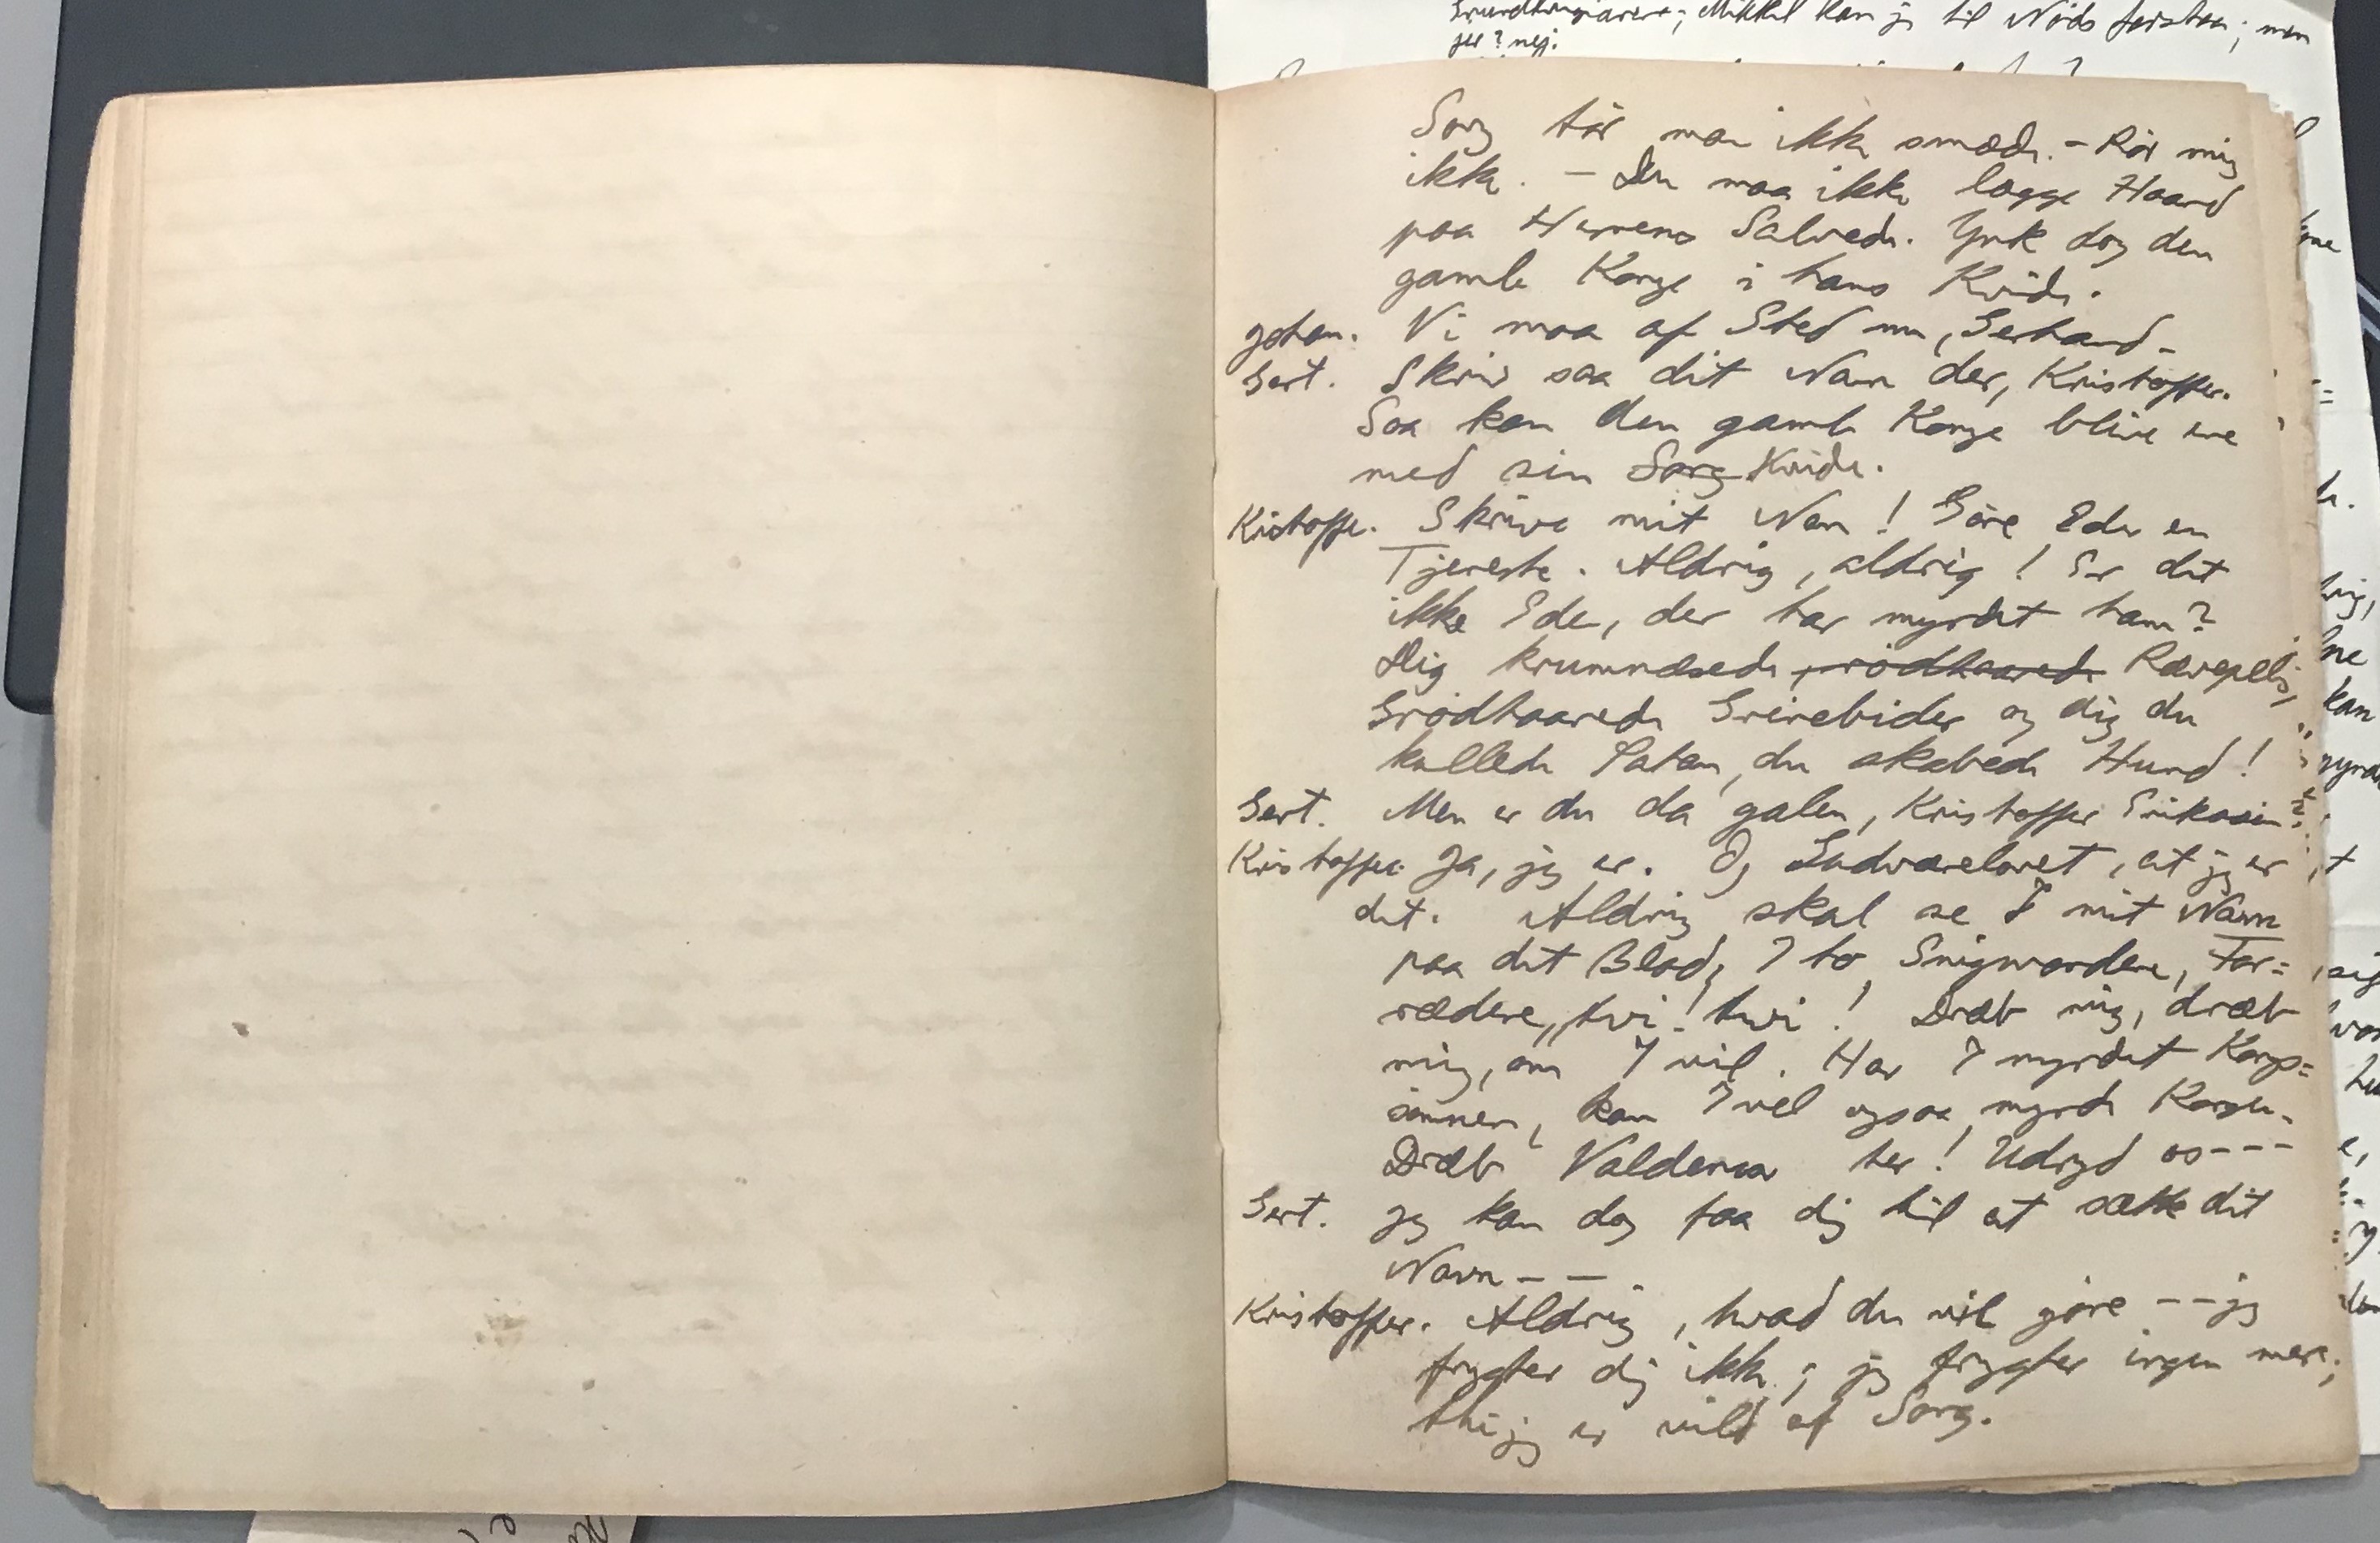 Grundtvigianere; Mikkel kan jeg til Nöds forstaa; men
jer? nej.
Sorg tör man ikke smæde. - Rör mig
ikke. - Du maa ikke lægge Haand
paa Herrens Salvede. Ynk dog den
gamle Konge i hans Kvide.
Johan. Vi maa af Sted nu, Gerhard -
Gert. Skriv saa dit Navn der, Kristoffer.
Saa kan den gamle Konge blive ene
med sin Sorg Kvide.
Kristoffer. Skrive mit Navn! Göre Eder en
Tjeneste. Aldrig, aldrig! Er det
ikke Eder, der har myrdet ham?
Dig krumnæsede, rödhaarede Rævepels,
Grödhaarede Grinebider og dig du
kullede Satan, du skabede Hund!
Gert. Men er du da galen, Kristoffer Eriksön?
Kristoffer. Ja, jeg er. Og Gudværelovet, at jeg er
det. Aldrig skal se I mit Navn
paa det Blad, I to Snigmordere, For=
rædere, tvi! tvi! Dræb mig, dræb
mig, om I vil. Har I myrdet Konge=
sönnen, kan I vel ogsaa myrde Kongen.
Dræb Valdemar her! Udryd os---
Gert. Jeg kan dog faa dig til at sætte dit
Navn - -
Kristoffer. Aldrig, hvad du vil göre -- jeg
frygter dig ikke; jeg frygter ingen mere;
thi jeg er vild af Sorg.